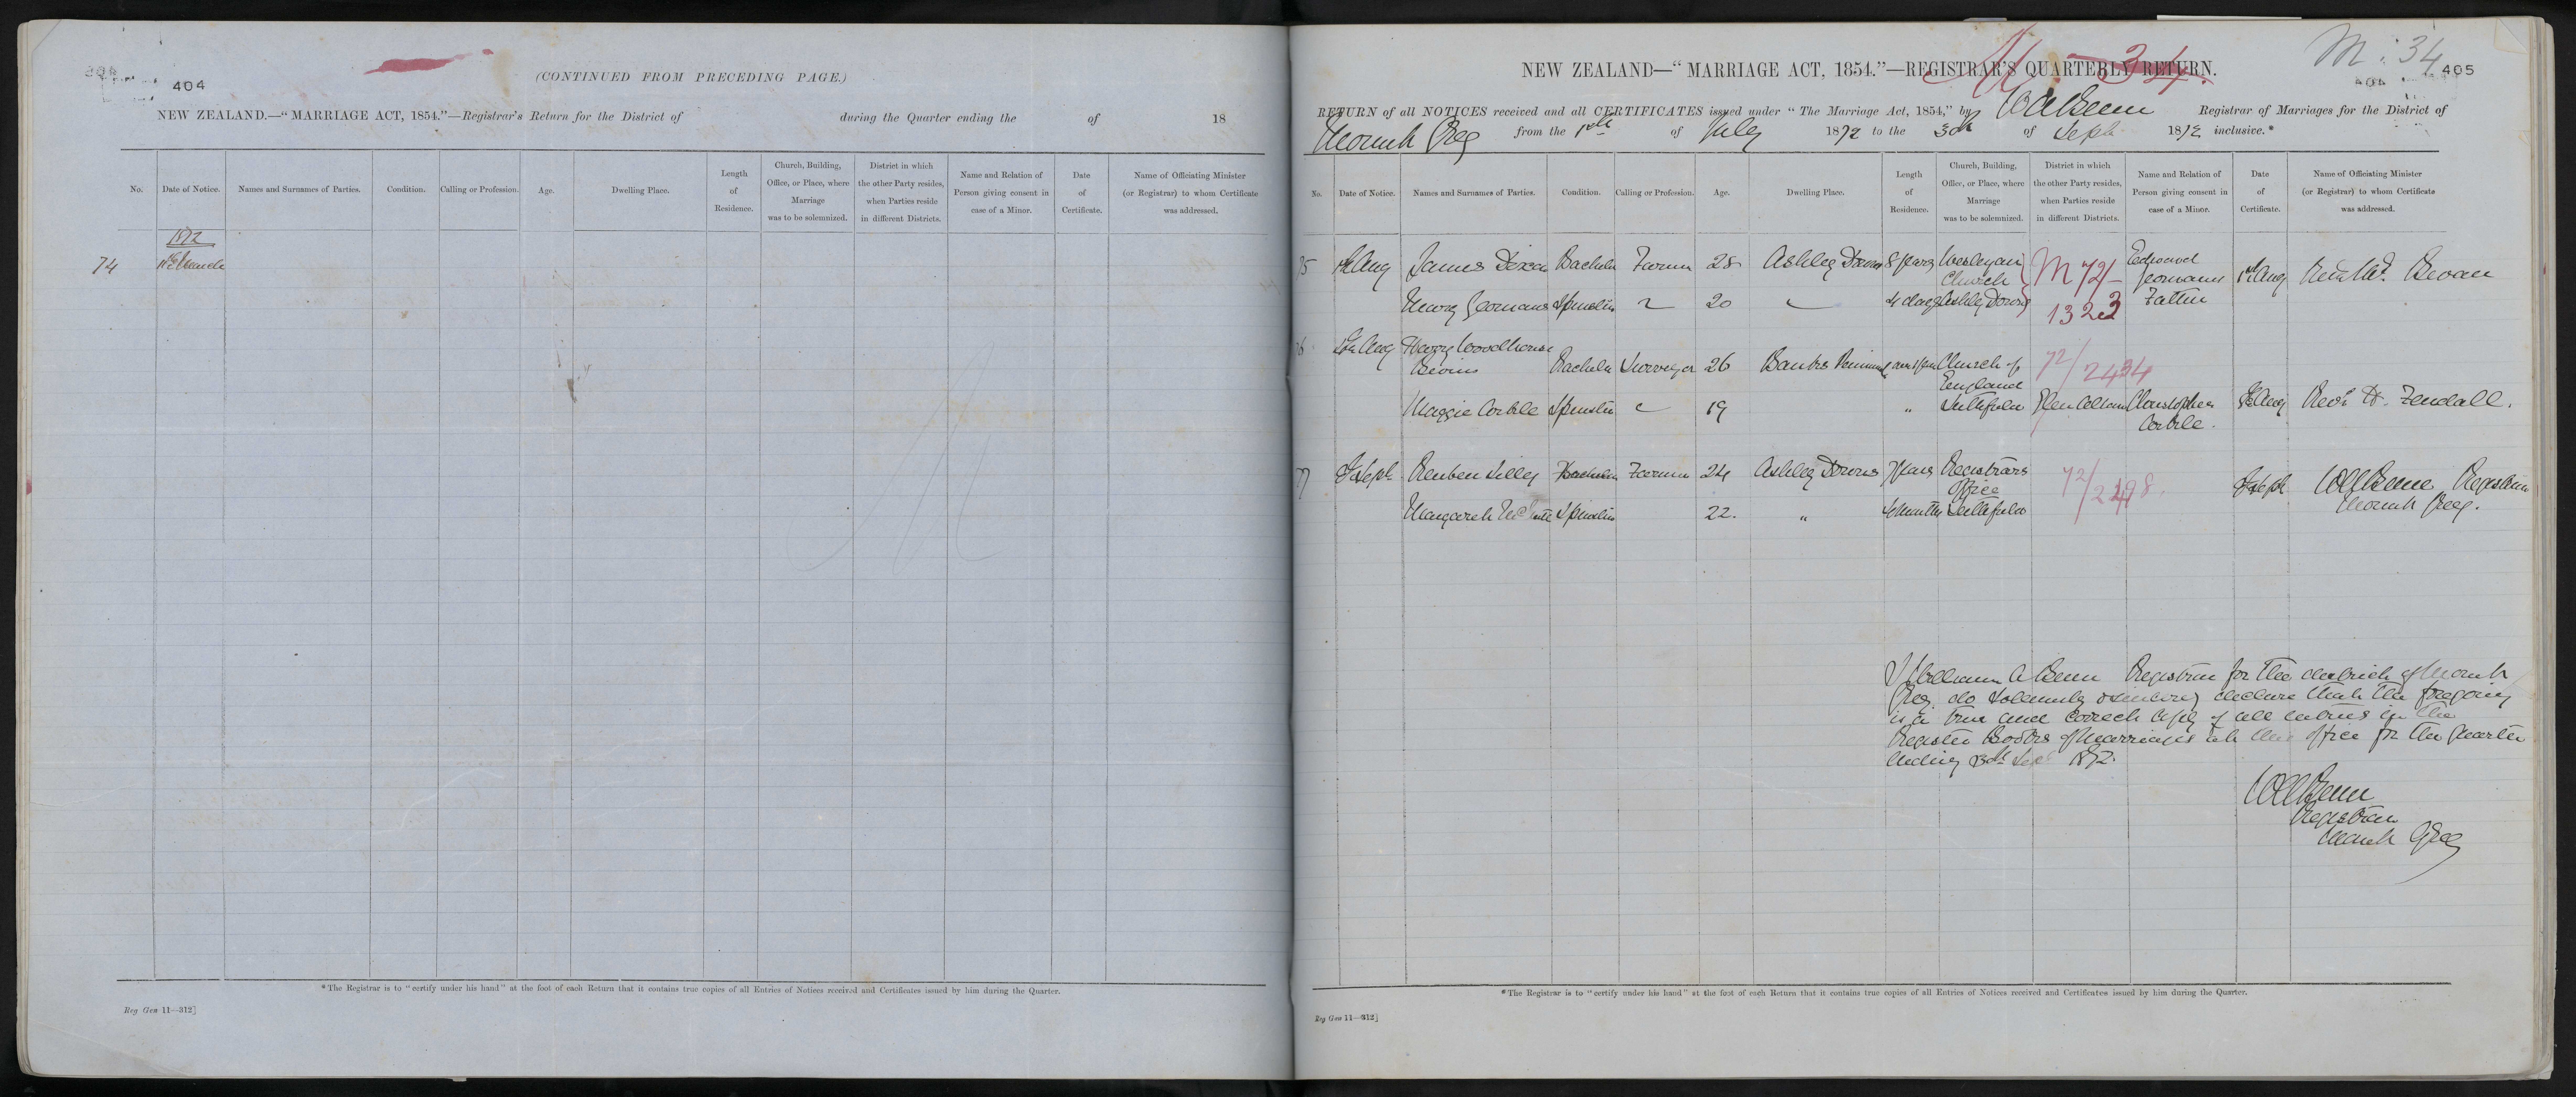 404
(CONTINUED FROM PRECEDING PAGE.)
NEW ZEALAND.—"MARRIAGE ACT, 1854."—Registrar's Return for the District of during the Quarter ending the of 18
No.
Date of Notice.
Names and Surnames of Parties.
Condition.
Calling or Profession.
Age.
Dwelling Place.
Length
of
Residence.
Church, Building,
Office, or Place, where
Marriage
was to be solemnized.
District in which
the other Party resides,
when Parties reside
in different Districts.
Name and Relation of
Person giving consent in
case of a Minor.
Date
of
Certificate.
Name of Officiating Minister
(or Registrar) to whom Certificate
was addressed.
1872
74
*The Registrar is to "certify under his hand" at the foot of each Return that it contains true copies of all Entries of Notices received and Certificates issued by him during the Quarter.
Reg Gen 11—312]
M: 34
405
NEW ZEALAND—"MARRIAGE ACT, 1854."—REGISTRAR'S QUARTERLY RETURN.
M 34
RETURN of all NOTICES received and all CERTIFICATES issued under "The Marriage Act, 1854," by W A Benn Registrar of Marriages for the District of
Mount Grey from the 1st of July 1872 to the 30th of Sept 1872 inclusive.*
No.
Date of Notice.
Names and Surnames of Parties.
Condition.
Calling or Profession.
Age.
Dwelling Place.
Length
of
Residence.
Church, Building,
Office, or Place, where
Marriage
was to be solemnized.
District in which
the other Party resides,
when Parties reside
in different Districts.
Name and Relation of
Person giving consent in
case of a Minor.
Date
of
Certificate.
Name of Officiating Minister
(or Registrar) to whom Certificate
was addressed.
75 1st Aug James Dixon Bachelor Farmer 28 Ashley Downs 8 years Wesleyan Church M 72/ Edward Yeomans 1st Aug Revd Wm Bevan
Mary Yeomans Spinster 20 4 days Ashley Downs 1323 Father
76 Aug Henry Woodhouse
Bachelor Surveyor 26 Banks Peninsula Church of England 72/2434
Maggie Corbile Spinster 19 " Leithfield Glen Christopher Corbile Aug Revd H. Fendall.
77 Sept Reuben Silley Bachelor Farmer 24 Ashley Downs 7 years Registrars Office 72/ Sept W A Benn Registrar
Margaret Spinster 22. " 4 months Leithfield Mount Grey.
I William A Benn Registrar for the district of Mount
Grey do solemnly & sincerely declare that the foregoing
is a true and correct copy of all entries in the
Register Books of Marriages at this office for the quarter
ending 30th Sept 1872.
W A Benn
Registrar
Mount Grey
*The Registrar is to "certify under his hand" at the foot of each Return that it contains true copies of all Entries of Notices received and Certificates issued by him during the Quarter.
Reg Gen 11—312]